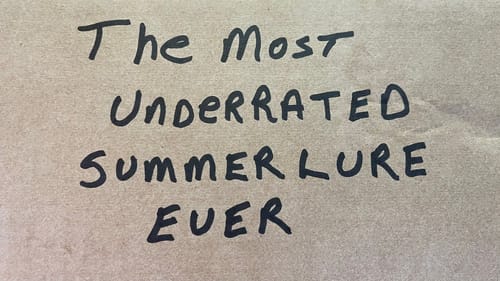 The MOST
UNDeRRATED
SUMMER LURE
EVER